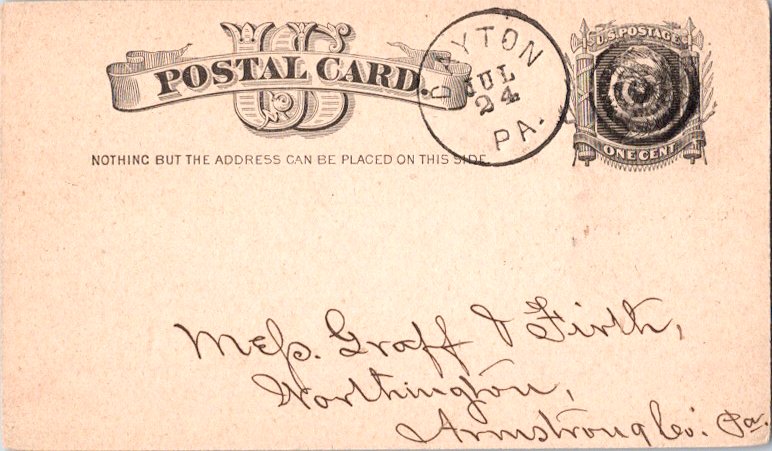 US
POSTAL CARD.
DAYTON
JUL
24
PA.
U.S. POSTAGE
ONE CENT
NOTHING BUT THE ADDRESS CAN BE PLACED ON THIS SIDE.
Mess. Graff & Firth,
Worthington,
Armstrong Co: Pa.